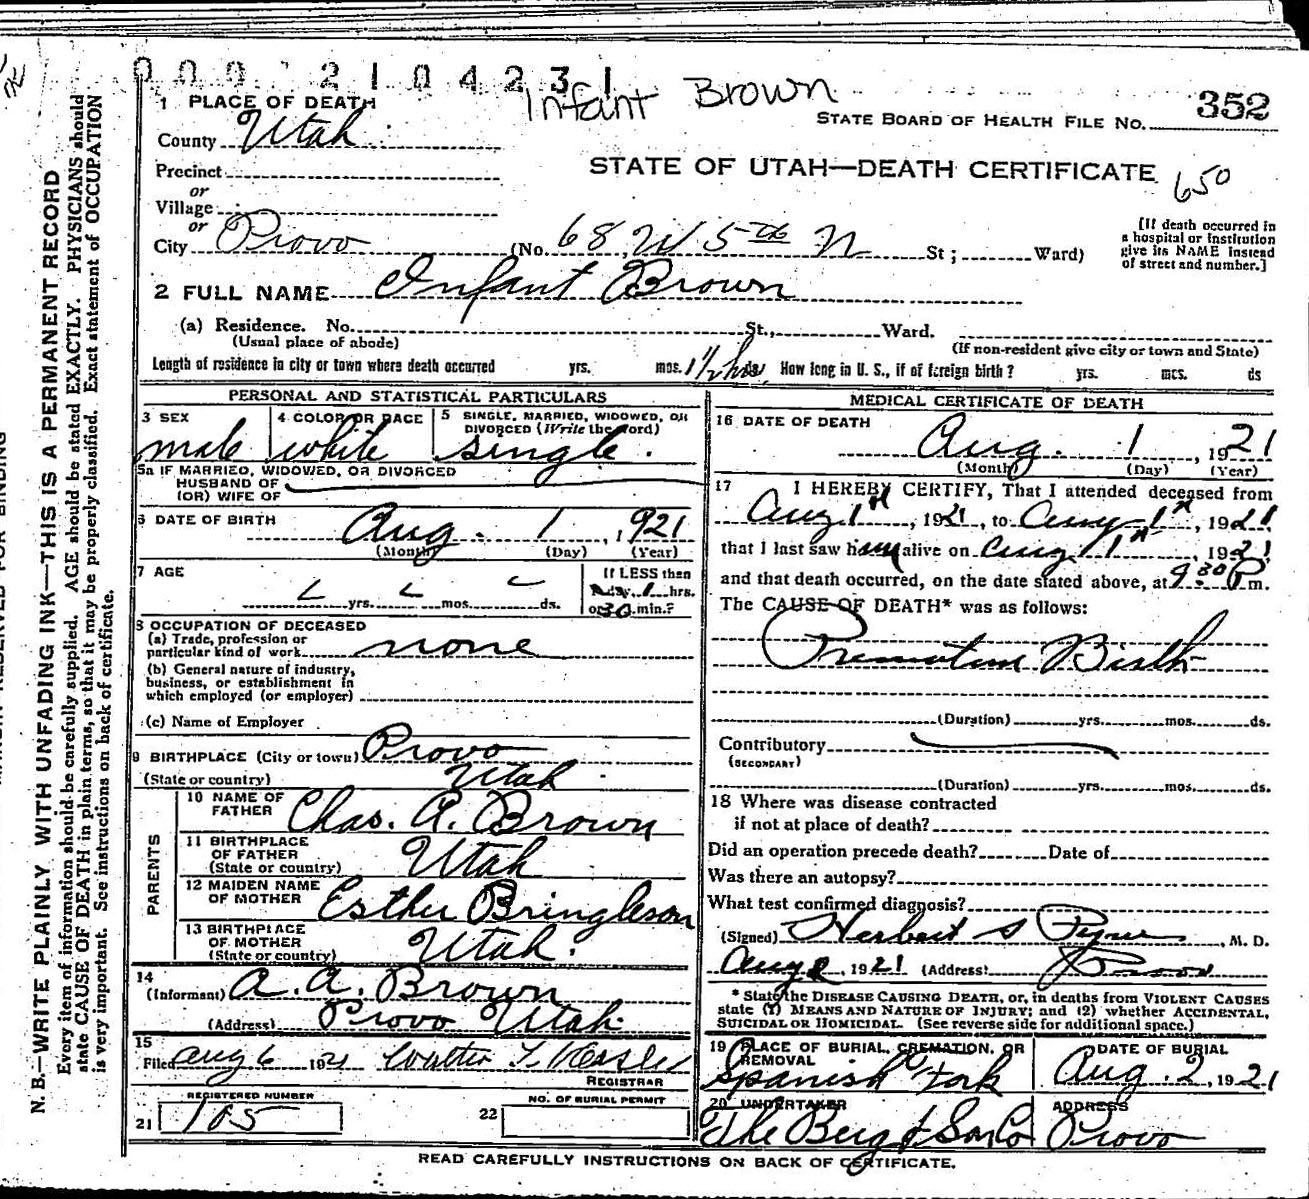 0002104231
Infant Brown
352
STATE BOARD OF HEALTH FILE NO.
1 PLACE OF DEATH
County Utah
STATE OF UTAH—DEATH CERTIFICATE
650
Precinct
or
Village
or
City Provo (No. 68 W 5th N St; Ward)
[If death occurred in a hospital or institution give its NAME instead of street and number.]
2 FULL NAME Infant Brown
(a) Residence. No. St., Ward.
(Usual place of abode)
(If non-resident give city or town and State)
Length of residence in city or town where death occurred yrs. mos. 1 1/2 hrs ds. How long in U. S., if of foreign birth? yrs. mos. ds
PERSONAL AND STATISTICAL PARTICULARS
3 SEX male
4 COLOR OR RACE white
5 SINGLE, MARRIED, WIDOWED, OR DIVORCED (Write the word) single.
5a IF MARRIED, WIDOWED, OR DIVORCED
HUSBAND OF
(OR) WIFE OF
6 DATE OF BIRTH Aug. 1, 1921
(Month) (Day) (Year)
7 AGE
yrs. mos. ds.
If LESS than
1 day 1 hrs.
or 30 min.?
8 OCCUPATION OF DECEASED
(a) Trade, profession or
particular kind of work none
(b) General nature of industry,
business, or establishment in
which employed (or employer)
(c) Name of Employer
9 BIRTHPLACE (City or town) Provo
(State or country) Utah
PARENTS
10 NAME OF FATHER Chas. A. Brown
11 BIRTHPLACE OF FATHER (State or country) Utah
12 MAIDEN NAME OF MOTHER Esther Bringleson
13 BIRTHPLACE OF MOTHER (State or country) Utah.
14
(Informant) A. A. Brown
(Address) Provo Utah
15
Filed Aug 6 1921 Walter T.
REGISTRAR
REGISTERED NUMBER
21 105
NO. OF BURIAL PERMIT
22
MEDICAL CERTIFICATE OF DEATH
16 DATE OF DEATH
Aug. 1, 1921
(Month) (Day) (Year)
17 I HEREBY CERTIFY, That I attended deceased from
Aug 1st, 1921, to Aug 1st, 1921
that I last saw him alive on Aug 1st, 1921
and that death occurred, on the date stated above, at 9:30 P m.
The CAUSE OF DEATH* was as follows:
Premature Birth
(Duration) yrs. mos. ds.
Contributory
(SECONDARY)
(Duration) yrs. mos. ds.
18 Where was disease contracted
if not at place of death?
Did an operation precede death? Date of
Was there an autopsy?
What test confirmed diagnosis?
(Signed) Herbert S Pyne, M. D.
Aug 2, 1921 (Address) Provo
* State the DISEASE CAUSING DEATH, or, in deaths from VIOLENT CAUSES
state (1) MEANS AND NATURE OF INJURY; and (2) whether ACCIDENTAL,
SUICIDAL OR HOMICIDAL. (See reverse side for additional space.)
19 PLACE OF BURIAL, CREMATION, OR REMOVAL
Spanish Fork
DATE OF BURIAL
Aug. 2, 1921
20 UNDERTAKER
The Berg & Son Co
ADDRESS
Provo
READ CAREFULLY INSTRUCTIONS ON BACK OF CERTIFICATE.
N. B.—WRITE PLAINLY WITH UNFADING INK—THIS IS A PERMANENT RECORD
Every item of information should be carefully supplied. AGE should be stated EXACTLY. PHYSICIANS should
state CAUSE OF DEATH in plain terms, so that it may be properly classified. Exact statement of OCCUPATION
is very important. See instructions on back of certificate.